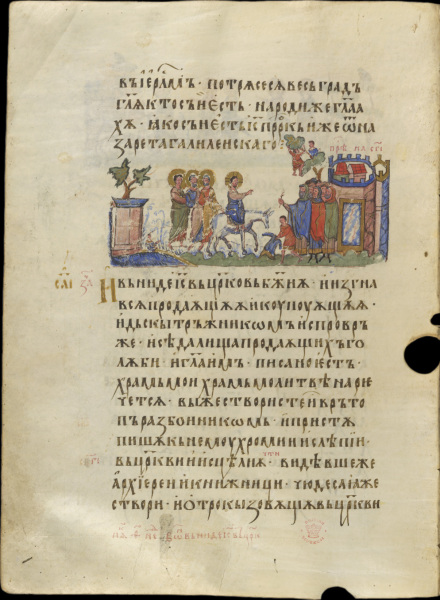 въ іерⷭ҇лмъ · потрѧсесѧ вьсь градъ
глѧ кто сь естъ · народи же глаа
хѫ · ꙗко сь естъ іс҃ прⷪ҇къ иже ѿ на
зарета галилеискаго
И въниде іс҃ въ црк҃овь бж҃иѫ · и изгна
всѧ продаѧщѫѧ и коупоуѧщѫѧ ·
и дъскы тръжникѡмъ испровръ
же · и сѣдалища продаѧщихъ го
лѫби · и гл҃а имъ · писано естъ ·
храмъ мои храмъ молитвѣ наре
четсѧ · вы же створисте и врътъ
пъ разбоиникѡмь · и пристѫ
пишѫ къ немоу хромии и слѣпїи ·
въ црк҃ви и исцѣли ѧ · видѣвше же
архїереи и книжници · чюдеса ꙗже
створи · и отрокы зовѫщѫѧ въ црк҃ви